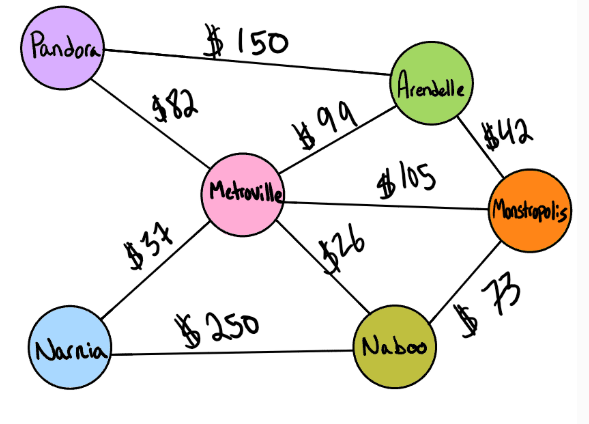 Pandora
$ 150
Arendelle
$82
$99
$42
Metroville
$105
Monstropolis
$37
$26
$ 73
$ 250
Narnia
Naboo